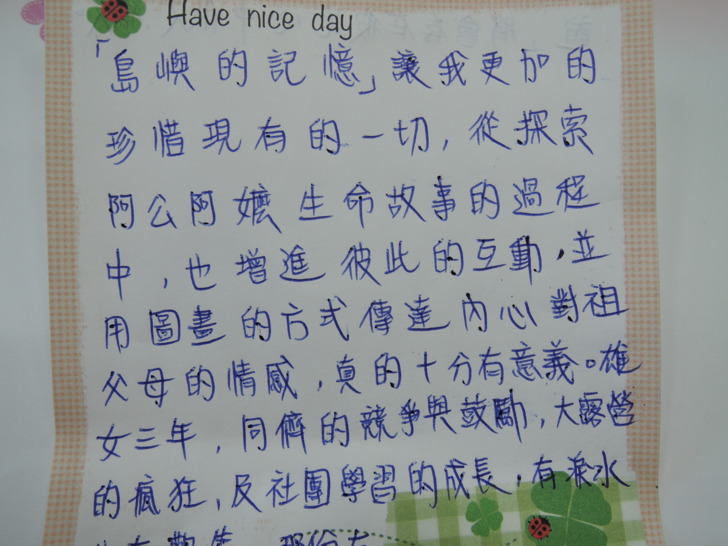 Have nice day
「島嶼的記憶」讓我更加的
珍惜現有的一切,從探索
阿公阿嬤生命故事的過程
中,也增進彼此的互動,並
用圖畫的方式傳達內心對祖
父母的情感,真的十分有意義。雄
女三年,同儕的競爭與鼓勵,大露營
的瘋狂,及社團學習的成長,有淚水
也有歡笑